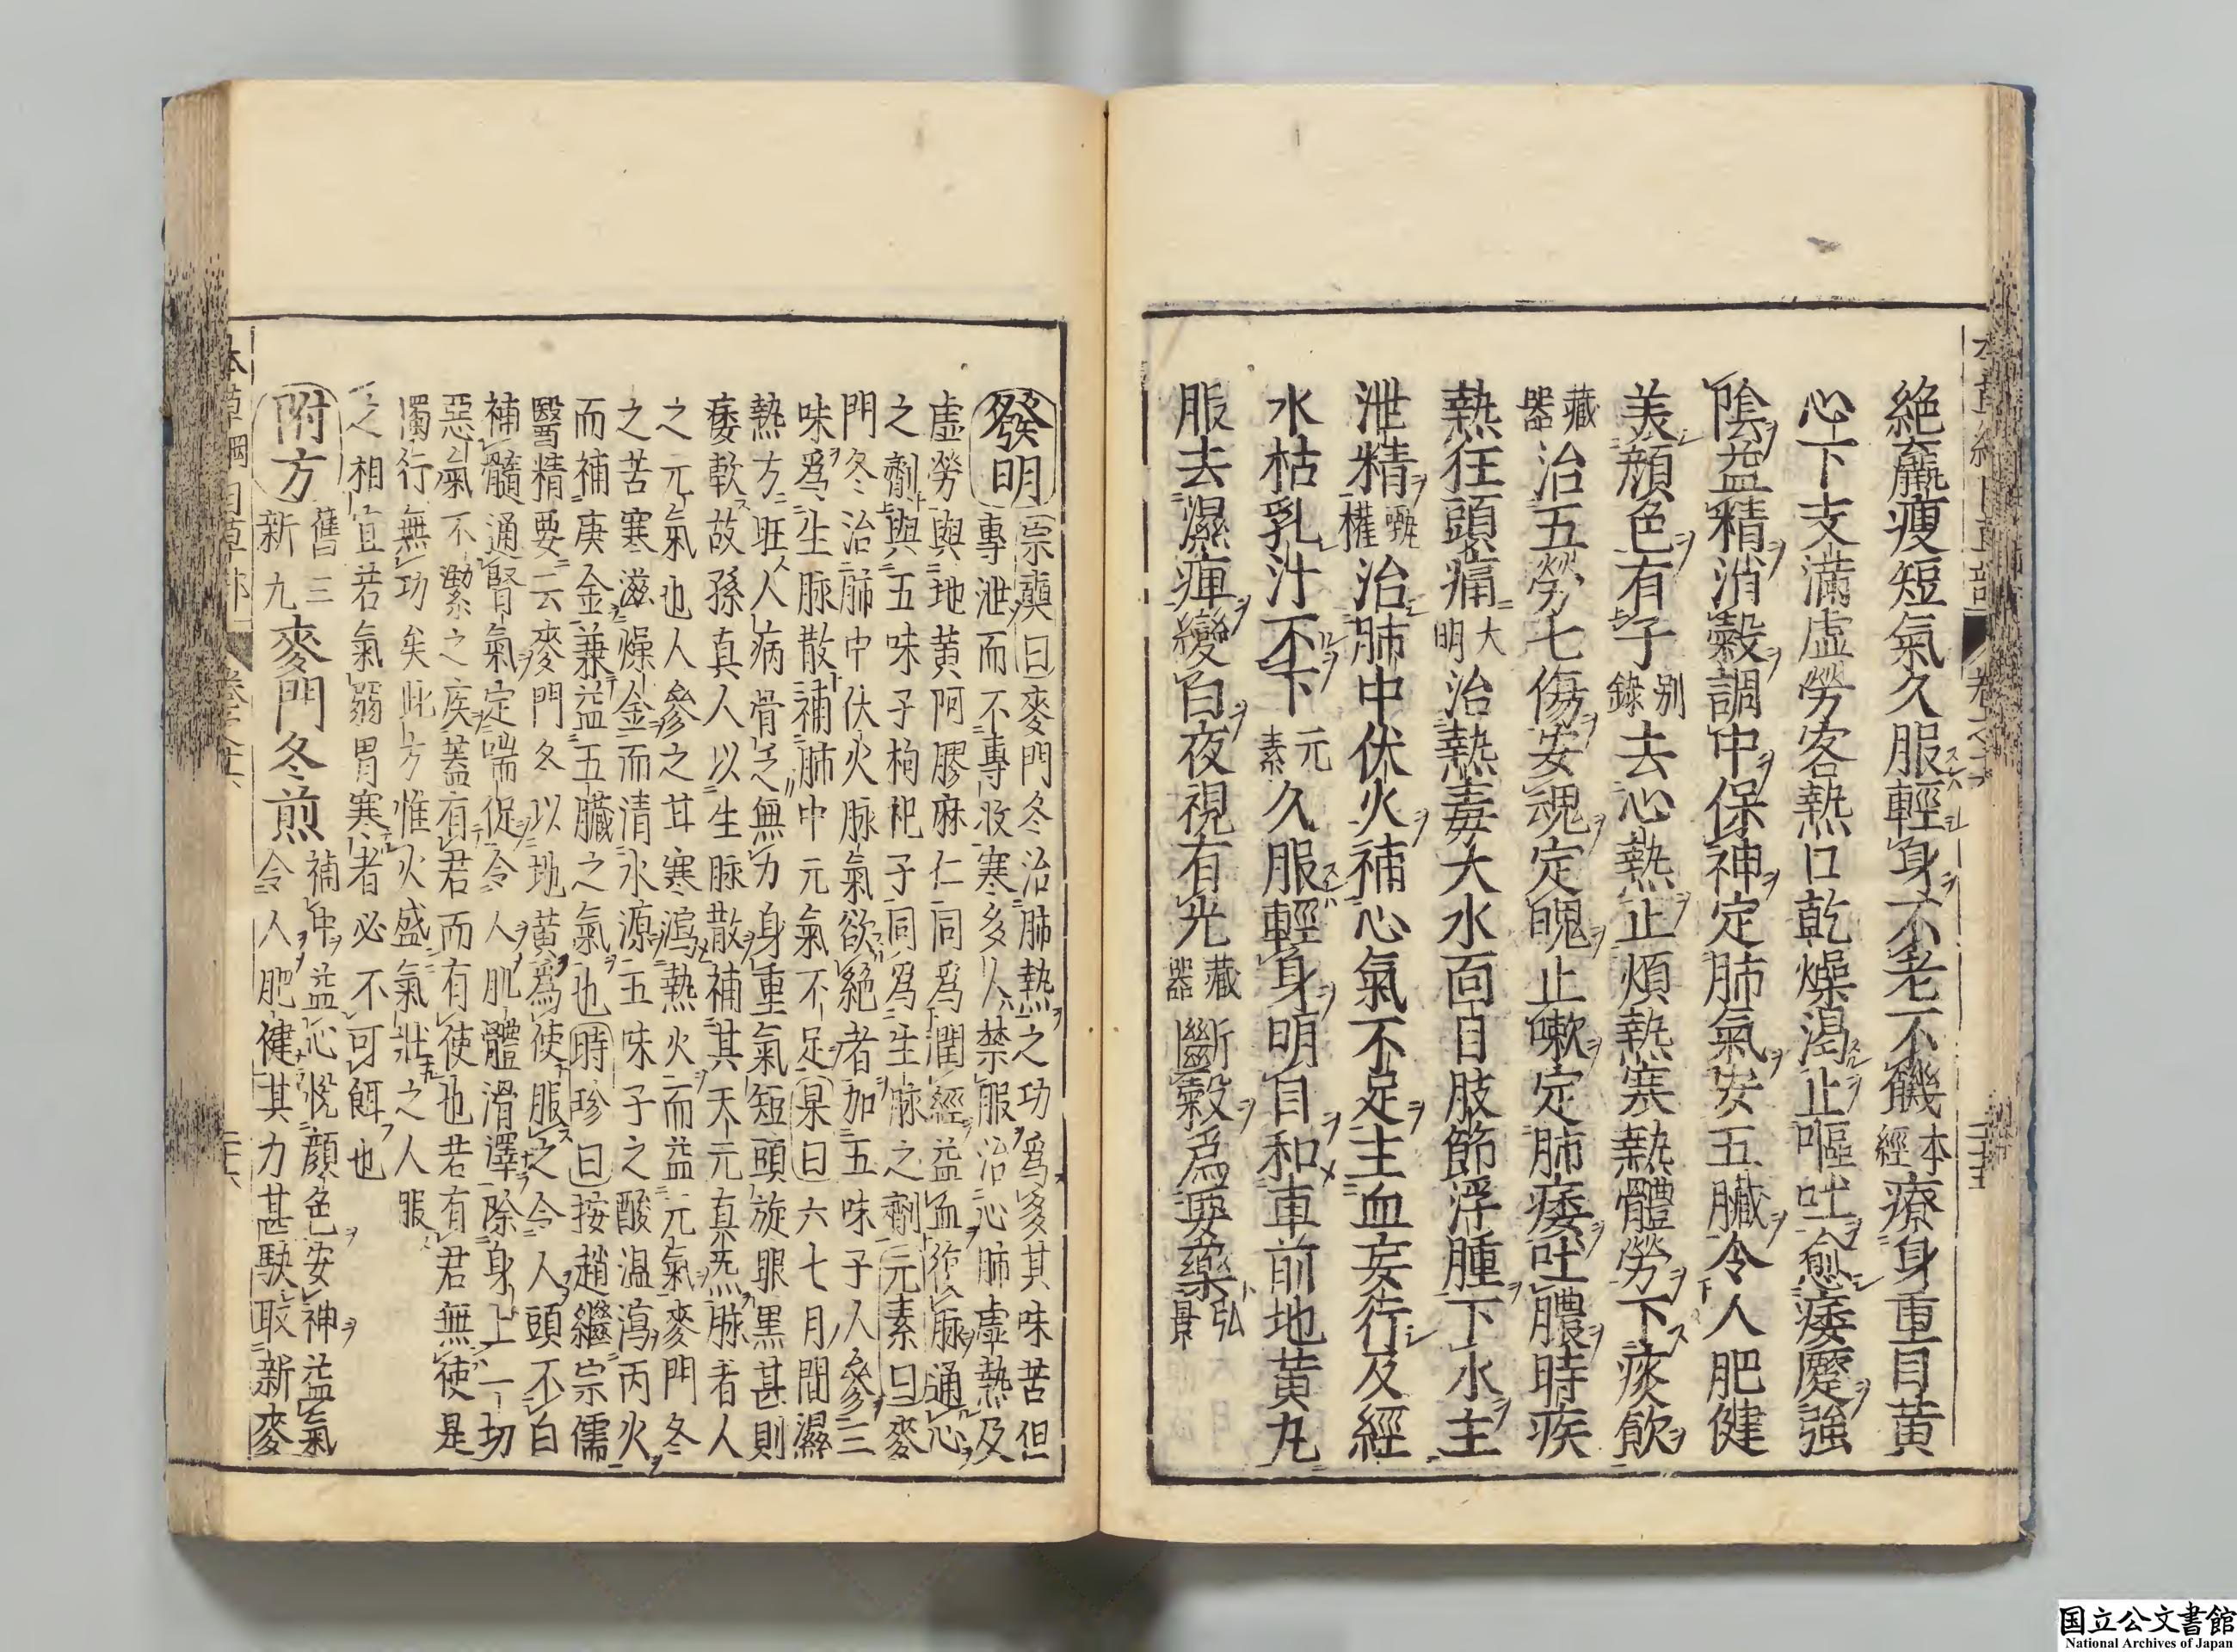 絶羸瘦短氣久服輕身不老不饑本經療身重目黄
心下支滿虛勞客熱口乾燥渴止嘔吐愈痿蹷強
陰益精消穀調中保神定肺氣安五臟令人肥健
美顔色有子别錄去心熱止煩熱寒熱體勞下痰飲
藏器治五勞七傷安魂定魄止嗽定肺痿吐膿時疾
熱狂頭痛大明治熱毒大水面目肢節浮腫下水主
泄精甄權治肺中伏火補心氣不足主血妄行及經
水枯乳汁不下元素久服輕身明目和車前地黄丸
服去濕痺變白夜視有光藏器斷穀爲要藥弘景
發明宗奭曰麥門冬治肺熱之功爲多其味苦但
專泄而不專收寒多人禁服治心肺虛熱及
虛勞與地黄阿膠麻仁同爲潤經益血復脉通心
之劑與五味子枸杞子同爲生脉之劑元素曰麥
門冬治肺中伏火脉氣欲絶者加五味子人參三
味爲生脉散補肺中元氣不足杲曰六七月間濕
熱方旺人病骨乏無力身重氣短頭旋眼黒甚則
痿軟故孫真人以生脉散補其天元真炁脉者人
之元氣也人參之甘寒瀉熱火而益元氣麥門冬
之苦寒滋燥金而清水源五味子之酸温瀉丙火
而補庚金兼益五臟之氣也時珍曰按趙繼宗儒
醫精要云麥門冬以地黄爲使服之令人頭不白
補髓通腎氣定喘促令人肌體滑澤除身上一切
惡氣不潔之疾蓋有君而有使也若有君無使是
獨行無功矣此方惟火盛氣壯之人服
之相宜若氣弱胃寒者必不可餌也
附方舊三新九麥門冬煎補中益心悅顔色安神益氣令人肥健其力甚駃取新麥
国立公文書館
National Archives of Japan